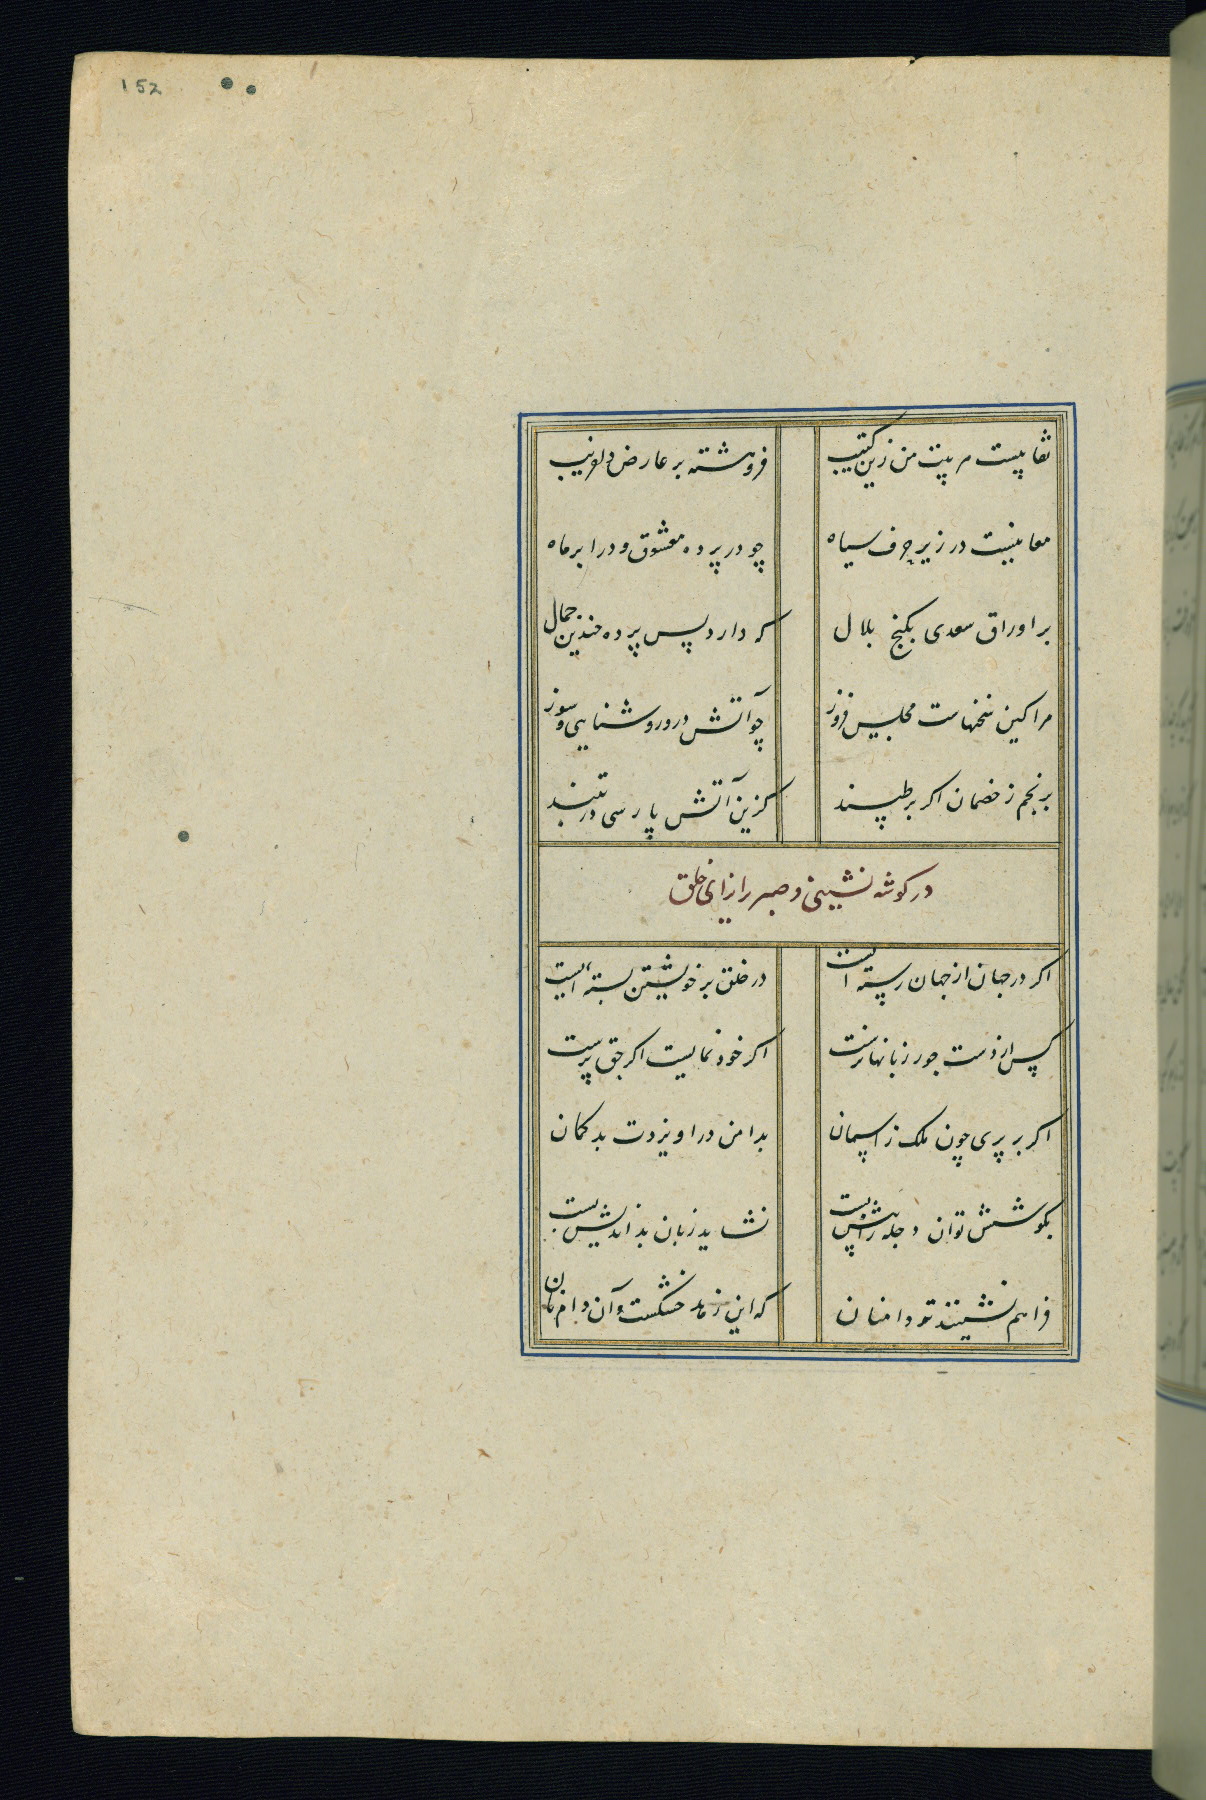 152
نقابیست هر بیت من زین کتیب فروهشته بر عارض دلفریب
معانیست در زیر حرف سیاه چو در پرده معشوق و در ابر ماه
بر اوراق سعدی نکنجد ملال که دارد پس پرده چندین جمال
مرا کین سخنهاست مجلس فروز چو آتش درو روشنایی و سوز
نرنجم ز خصمان اکر برطپند کزین آتش پارسی در تبند
در کوشه نشینی و صبر بر ایذای خلق
اکر در جهان از جهان رسته ایست در خلق بر خویشتن بسته ایست
کس از دست جور زبانها نرست اکر خود نمایست اکر حق پرست
اکر بر پری چون ملک ز آسمان بدامن در اویزدت بد کمان
بکوشش توان دجله را پیش بست نشاید زبان بداندیش بست
فراهم نشینند تر دامنان که این زهد خشکست و آن دام نان